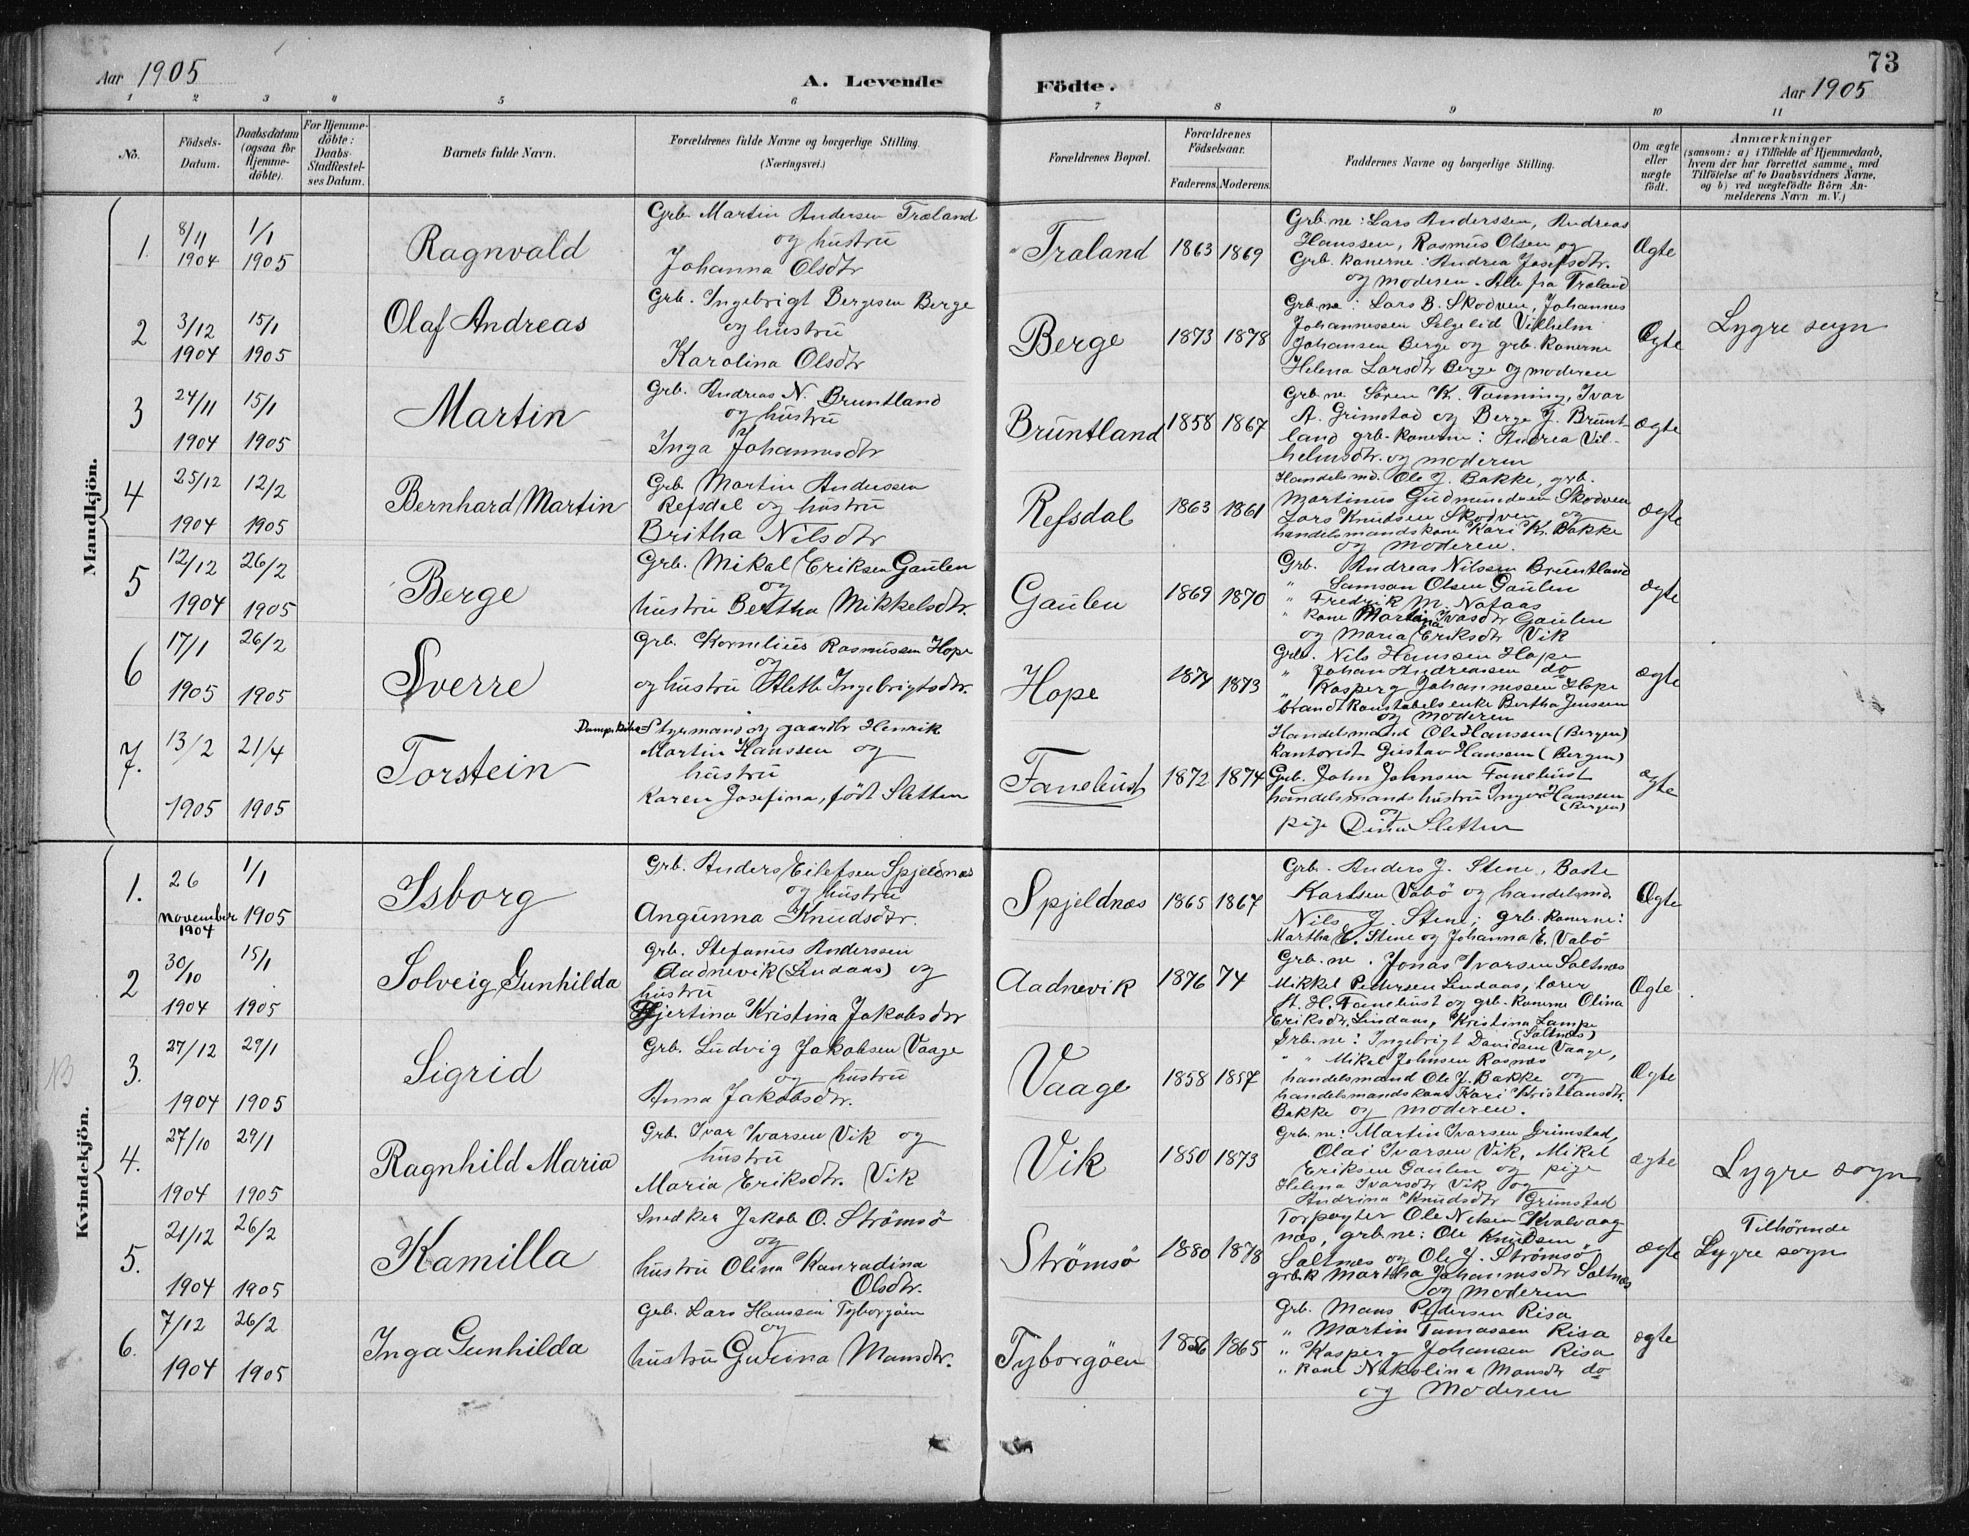 73
Aar 1905
A. Levende Födte.
Aar 1905
1 2 3 4 5 6 7 8 9 10 11
No.
Födsels-Datum.
Daabsdatum (ogsaa for Hjemme-döbte).
For Hjemme-döbte: Daabs-Stadfæstel-ses Datum.
Barnets fulde Navn.
Forældrenes fulde Navne og borgerlige Stilling.
(Næringsvei.)
Forældrenes Bopæl.
Forældrenes Födselsaar.
Faderens. Moderens.
Faddernes Navne og borgerlige Stilling.
Om ægte eller uægte födt.
Anmærkninger
(saasom: a) i Tilfælde af Hjemmedaab,
hvem der har forrettet samme, med
Tilföielse af to Daabsvidners Navne,
og b) ved uægtefödte Börn An-
melderens Navn m. V.)
Mandkjön.
1. 8/11 1904 1/1 1905 Ragnvald
Grb. Martin Andersen Træland
og hustru
Johanna Olsdtr
Træland 1863 1869
Grb.ne: Lars Anderssen, Andreas
Hanssen, Rasmus Olsen og
Grb. konerne: Andrea Josefsdtr.
og moderen. Alle fra Træland
Ægte
2 3/12 1904 15/1 1905 Olaf Andreas
Grb. Ingebrigt Bergesen Berge
og hustru
Karolina Olsdtr
Berge 1873 1878
Grb.ne: Lars B. Skodven, Johannes
Johannessen Selgelid Vilhelm
Johansen Berge og grb. konerne
Helena Larsdtr Berge og moderen
Ægte
Lygre sogn
3 24/11 1904 15/1 1905 Martin
Grb. Andreas N. Bruntland
og hustru
Inga Johannesdtr
Bruntland 1858 1867
Grb.ne Sören K. Tonning, Ivar
A. Grimstad og Berge J. Brunt-
land grb. konerne: Andrea Vil-
helmsdtr. og moderen
ægte
4 25/12 1904 12/2 1905 Bernhard Martin
Grb. Martin Anderssen
Refsdal og hustru
Britha Nilsdtr
Refsdal 1863 1861
Handelsmd. Ole J. Bakke, grb.
Martinus Gudmundsen Skodven
Lars Knudsen Skodven og
handelsmandskone Kari K. Bakke
og moderen.
ægte
5 12/12 1904 26/2 1905 Berge
Grb. Mikal Eriksen Gaulen
og
hustru Bertha Mikkelsdtr.
Gaulen 1869 1870
Grb. Andreas Nilssen Bruntland
" Samson Olsen Gaulen
" Fredrik M. Nataas
" kone Martina Ivasdtr Gaulen
og Maria Eriksdtr Vik
ægte
6 17/1 1905 26/2 1905 Sverre
Grb. Kornelius Rasmussen Hope
og
og hustru Alette Ingebrigtsdtr.
Hope 1874 1873
Grb. Nils Hanssen Hope
" Johan Andreassen do
" Kasperg Johannessen Hope
brandkonstabelsenke Bertha Jenssen
og moderen
ægte
7. 13/2 1905 21/4 1905 Torstein
Styrmand og gaardbr Henrik
Martin Hanssen og
hustru
Karen Josefina, født Sletten
Fanebust 1872 1874
Handelsmand Ole Hanssen (Bergen)
Kontorist Gustav Hanssen (Bergen)
Grb. John Johnsen Fanebust
handelsmands hustru Inger Hanssen
(Bergen)
og
pige Dina Sletten
ægte
Kvindekjön.
1. 26 november 1904 1/1 1905 Isborg
Grb. Anders Eilefsen Spjeldnæs
og hustru
Angunna Knudsdtr.
Spjeldnæs 1865 1867
Grb. Anders J. Stene, Baste
Karlsen Vabö og handelsmd.
Nils J. Stene; grb. konerne:
Martha E. Stene og Johanna E. Vabö
Ægte
2 30/10 1904 15/1 1905 Solveig Gunhilda
Grb. Stefanus Anderssen
Aadnevik (Lindaas) og
hustru
Hjertina Kristina Jakobsdtr
Aadnevik 1876 74
Grb.ne. Jonas Ivarsen Saltnæs
Mikkel Pedersen Lindaas, lærer
A. H. Fanebust og grb. konerne Olina
Eriksdtr. Lindaas, Kristina Lampe
(Saltnæs)
Ægte
3. 27/12 1904 29/1 1905 Sigrid
Grb. Ludvig Jakobsen Vaage
og hustru
Anna Jakobsdtr.
Vaage 1858 1857
Grb.ne: Ingebrigt Davidsen Vaage,
" " Mikal Johnsen Rosnæs
handelsmand Ole J. Bakke og
handelsmandskone Kari Kristiansdtr.
Bakke og moderen.
Ægte
4. 27/10 1904 29/1 1905 Ragnhild Maria
Grb. Ivar Ivarsen Vik og
hustru
Maria Eriksdtr. Vik
Vik 1850 1873
Grb.ne: Martin Ivarsen Grimstad,
Olai Ivarsen Vik, Mikel
Eriksen Gaulen og pige
Helena Ivarsdtr Vik og
Andrina Knudsdtr Grimstad
ægte
Lygre sogn
5. 21/12 1904 26/2 1905 Kamilla
Snedker Jakob O. Strömsö
og
hustru Olina Konradina
Olsdtr.
Strömsö 1880 1878
Torpagter Ole Nilsen Kvalvaag
næs, grb.ne: Ole Knudsen
Saltnæs og Ole J. Strömsö
grb.k Martha Johannesdtr Saltnæs
og moderen
ægte
Tilhörende
Lygre sogn
6. 7/12 1904 26/2 1905 Inga Gunhilda
Grb. Lars Hanssen Tyborgöen
og
hustru Gurina Monsdtr.
Tyborgöen 1856 1865
Grb. Mons Pedersen Risa
" Martin Tomassen Risa
" Kasperg Johansen Risa
" kone Nikolina Monsdtr do
og Moderen
ægte